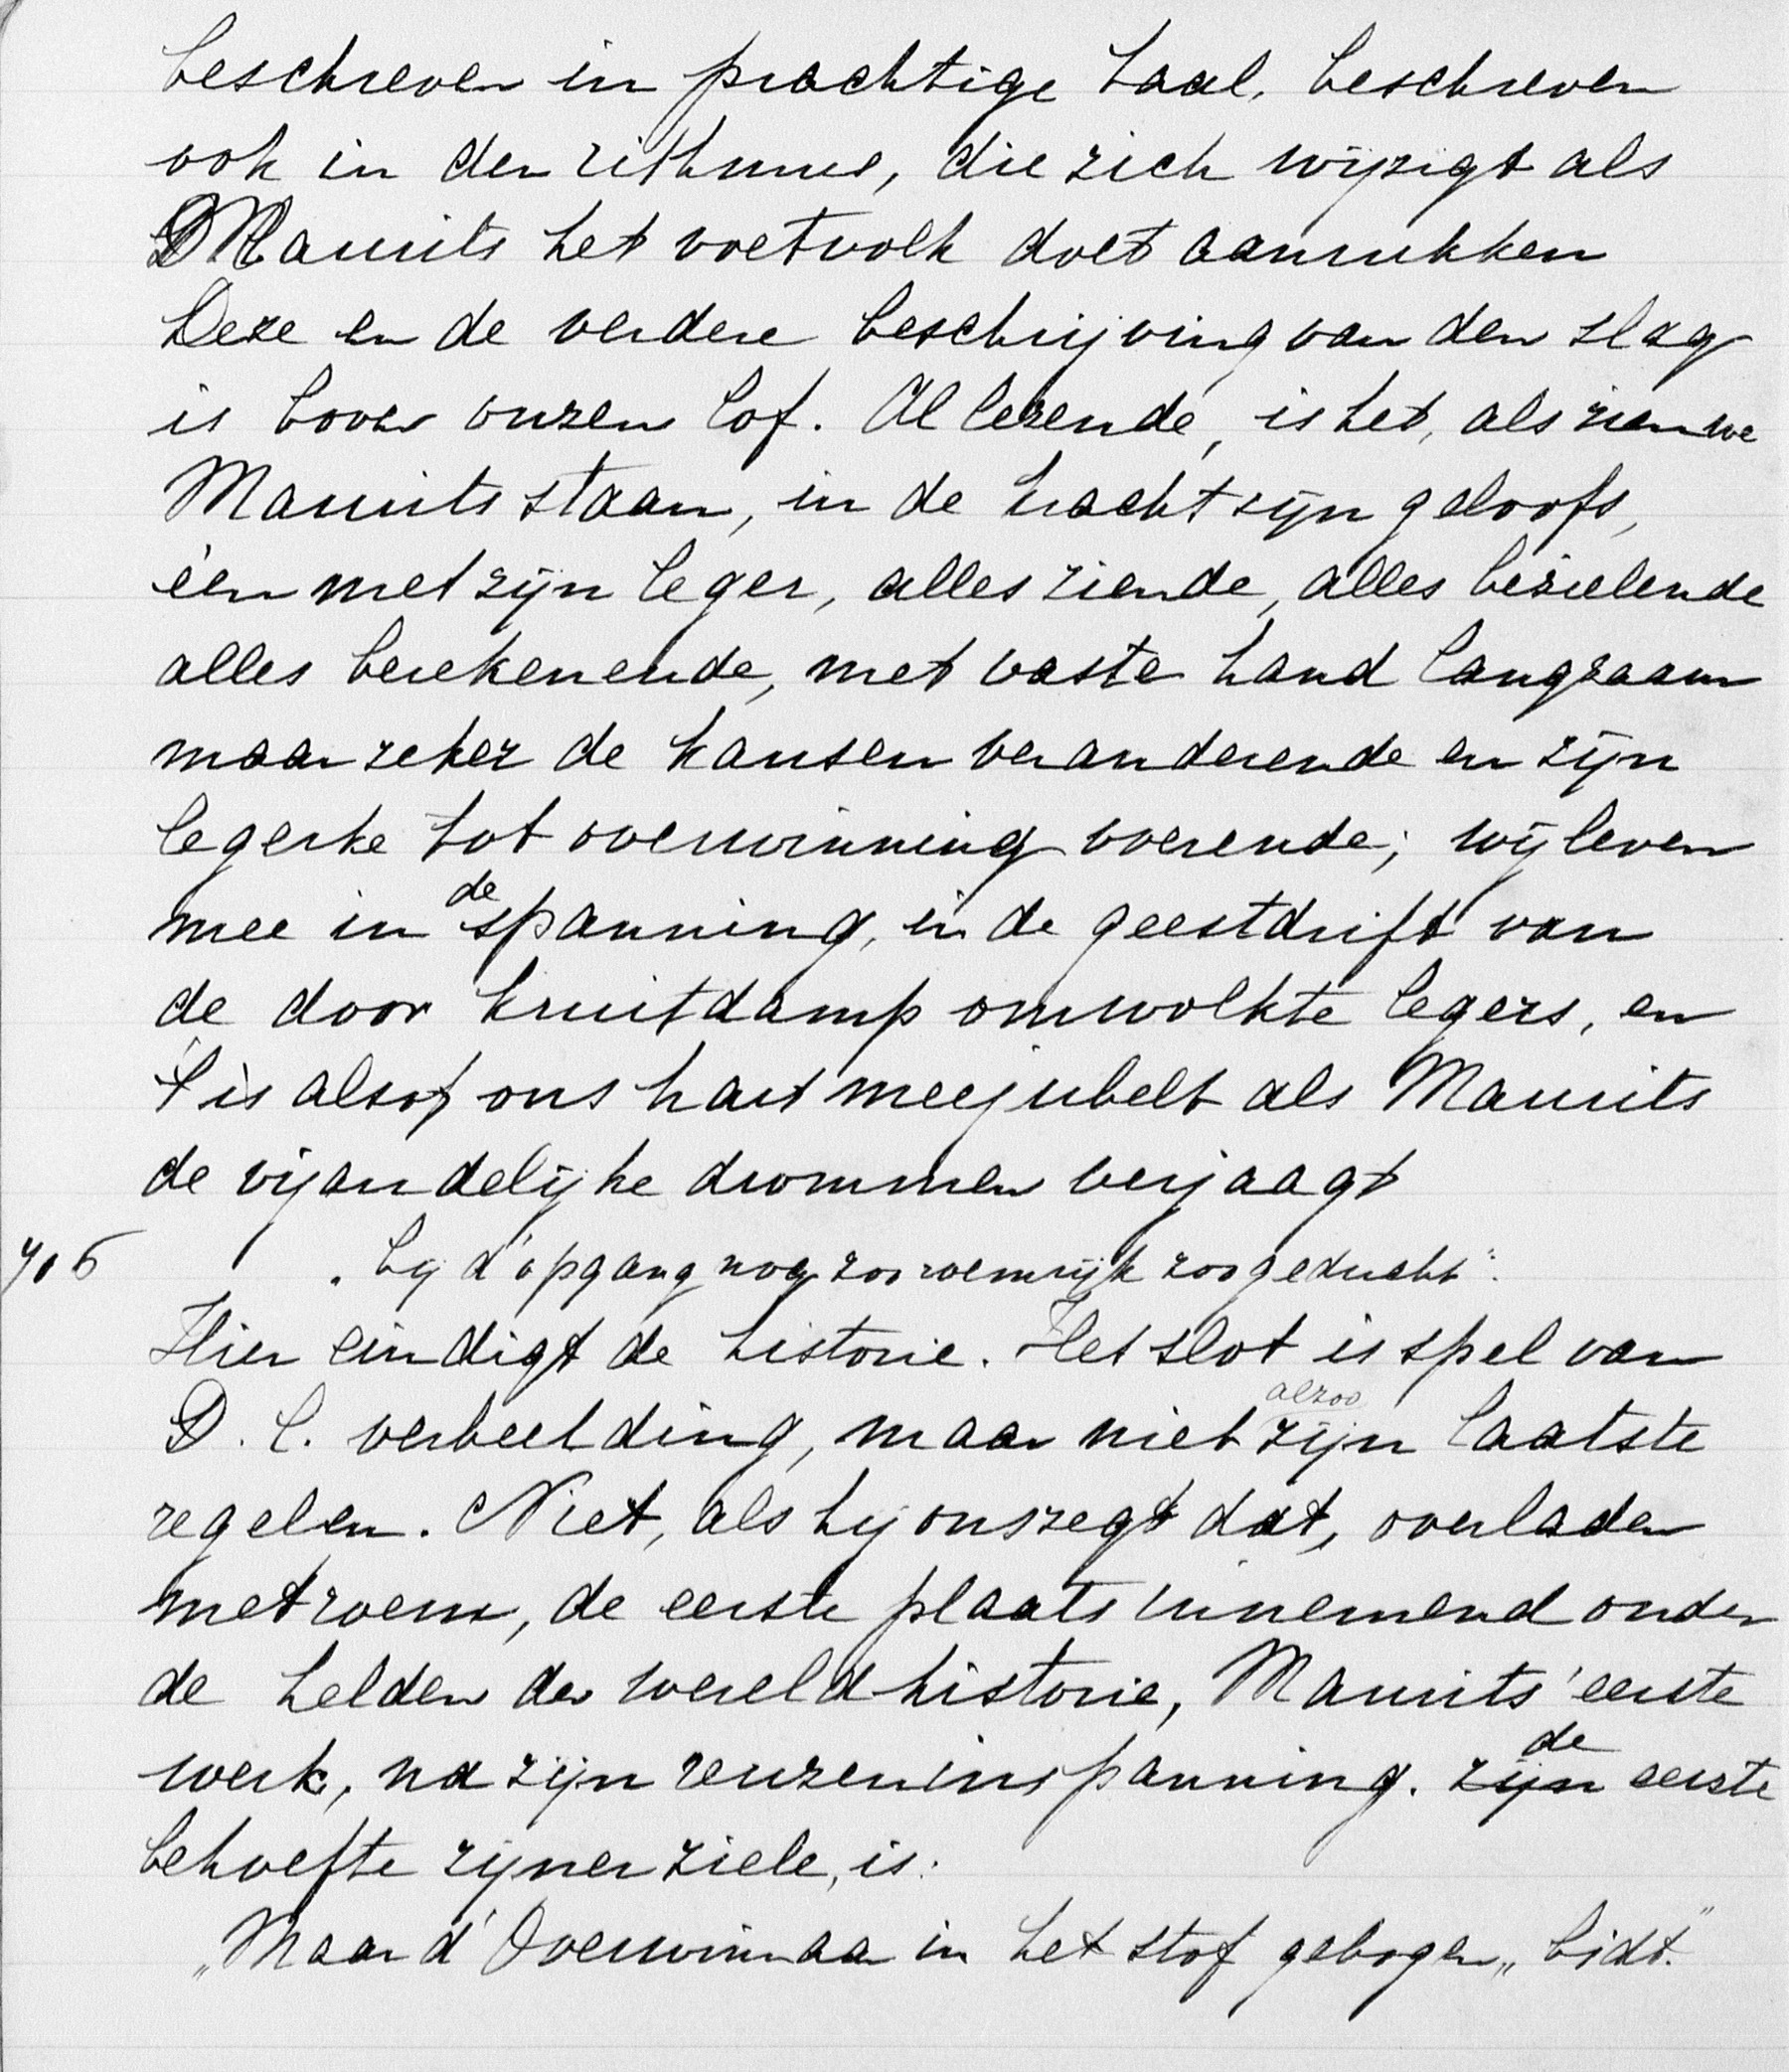 beschreven in prachtige taal, beschreven
ook in den rithmus, die zich wijzigt als
Maurits het voetvolk doet aanrukken
Deze en de verdere beschrijving van den slag
is boven onzen lof. Al lezende, is het, als zien we
Maurits staan, in de kracht zijn geloofs,
één met zijn leger, alles ziende, alles bezielende
alles berekenende, met vaste hand langzaam
maar zeker de kansen veranderende en zijn
legerke tot overwinning voerende; wij leven
mee in de spanning, in de geestdrift van
de door kruitdamp omwolkte legers, en
't is alsof ons hart meejubelt als Maurits
de vijandelijke drommen verjaagt
"bij d'opgang nog zoo roemrijk zoo geducht".
Hier eindigt de historie. Het slot is spel van
D. C. verbeelding, maar niet alzoo zijn laatste
regelen. Niet, als hij ons zegt dat, overladen
met roem, de eerste plaats innemend onder
de helden der wereldhistorie, Maurits' eerste
werk, na zijn reuzeninspanning. zijn de eerste
behoefte zijner ziele, is:
„Maar d'Overwinnaar in het stof gebogen„ bidt."